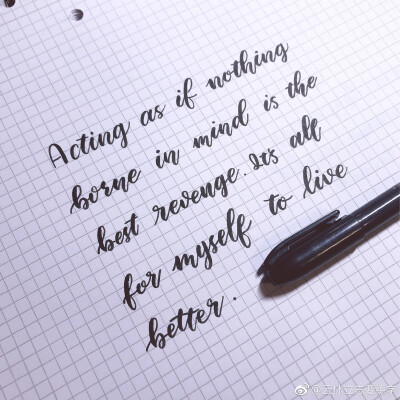 Acting as if nothing
borne in mind is the
best revenge. It's all
for myself to live
better.